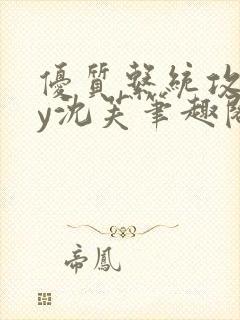 優質繫統攻
y沈芙筆趣閣
帝鳳